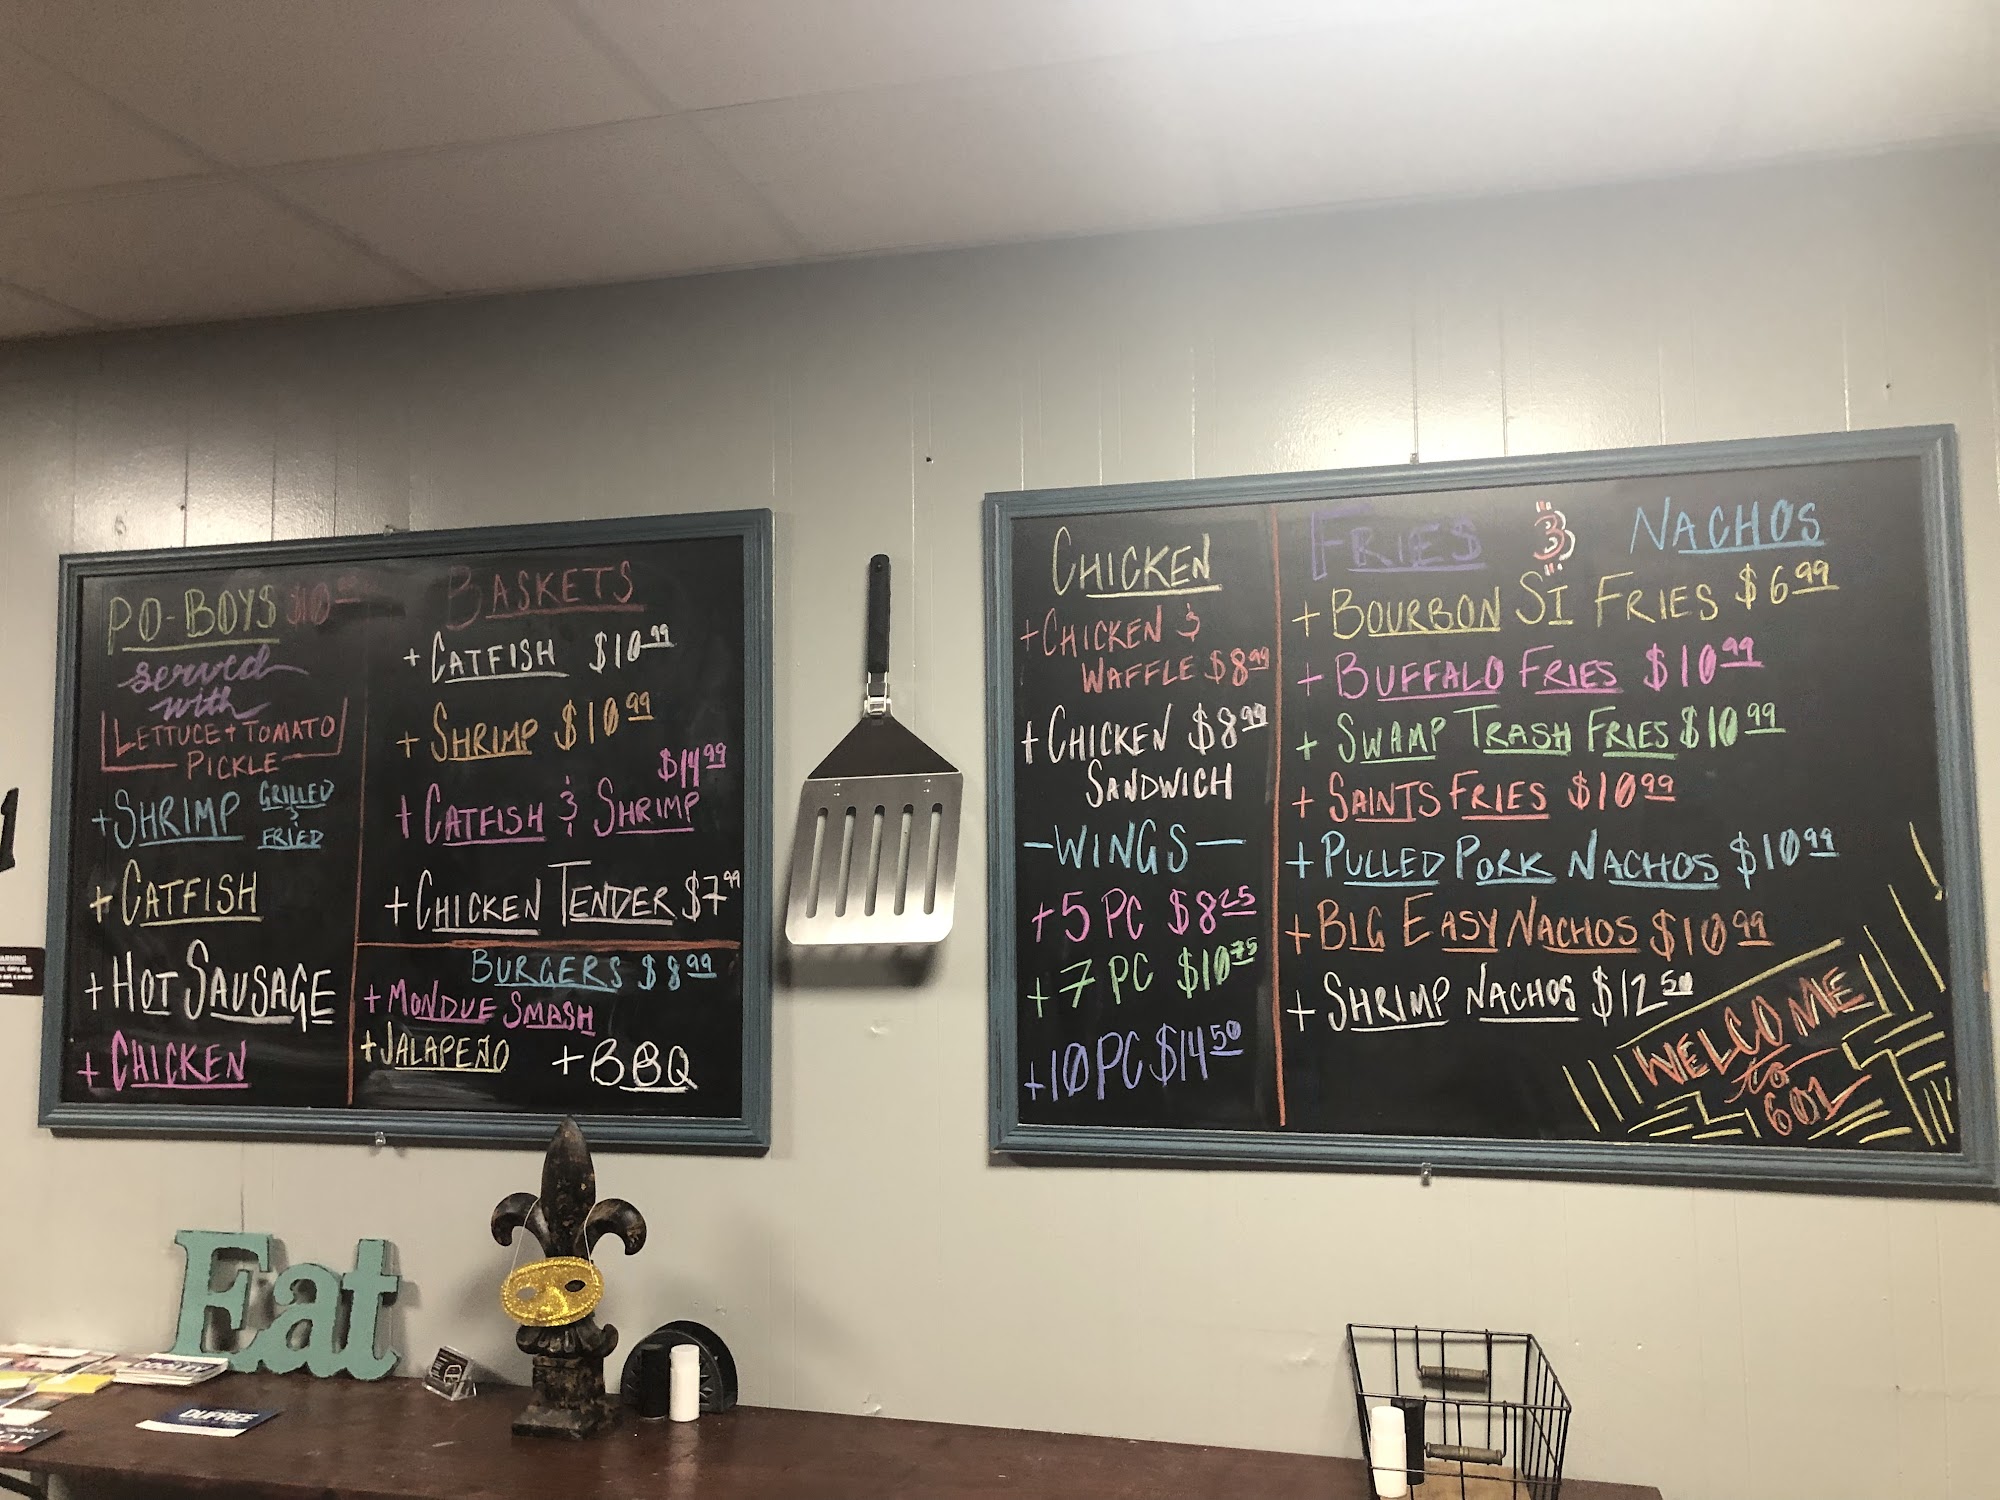 PO-BOYS
served
with
LETTUCE + TOMATO
PICKLE
+ SHRIMP GRILLED
&
FRIED
+ CATFISH
+ HOT SAUSAGE
+ CHICKEN
BASKETS
+ CATFISH $10.99
+ SHRIMP $10.99
$14.99
+ CATFISH & SHRIMP
+ CHICKEN TENDER $7.99
BURGERS $8.99
+ MONDUE SMASH
+ JALAPEÑO + BBQ
CHICKEN
+ CHICKEN &
WAFFLE $8.99
+ CHICKEN $8.99
SANDWICH
- WINGS -
+ 5 PC $8.25
+ 7 PC $10.75
+ 10 PC $14.50
FRIES & NACHOS
+ BOURBON ST FRIES $6.99
+ BUFFALO FRIES $10.99
+ SWAMP TRASH FRIES $10.99
+ SAINTS FRIES $10.99
+ PULLED PORK NACHOS $10.99
+ BIG EASY NACHOS $10.99
+ SHRIMP NACHOS $12.50
WELCOME
to
601
Eat
COOLEY
DUPREE